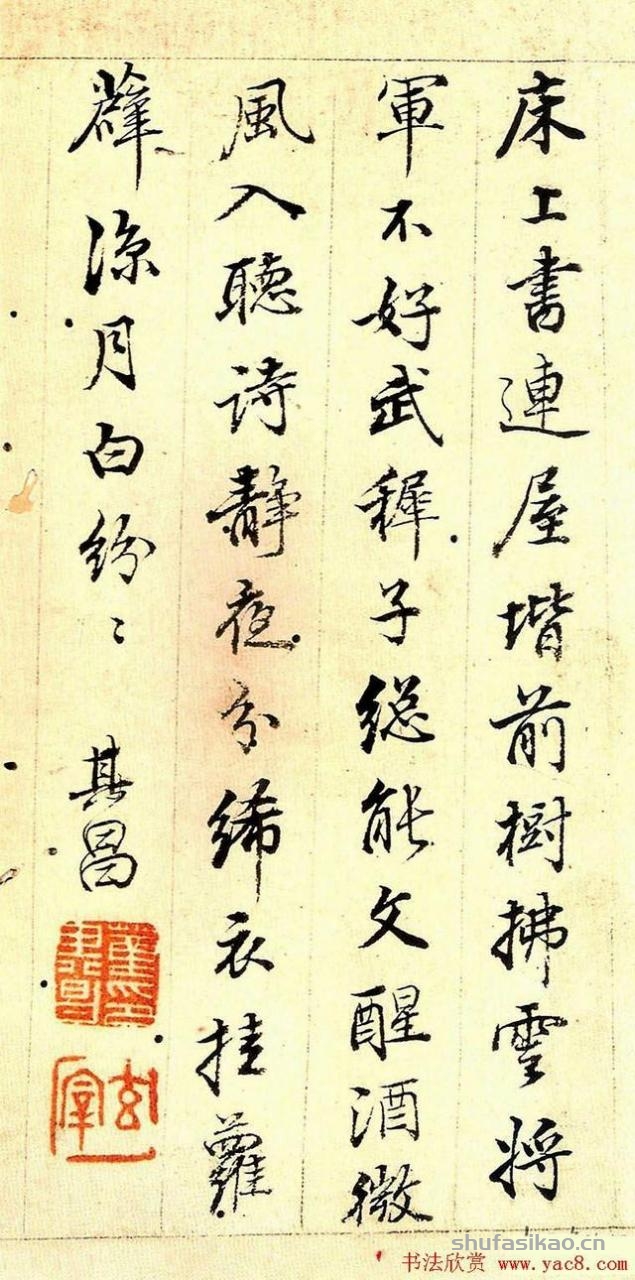 床上書連屋堦前樹拂雲將
軍不好武稺子總能文醒酒微
風入聽詩靜夜分絺衣挂蘿
薜涼月白紛〻
其昌
董其昌印
玄宰
shufasikao.cn
书法欣赏 www.yac8.com